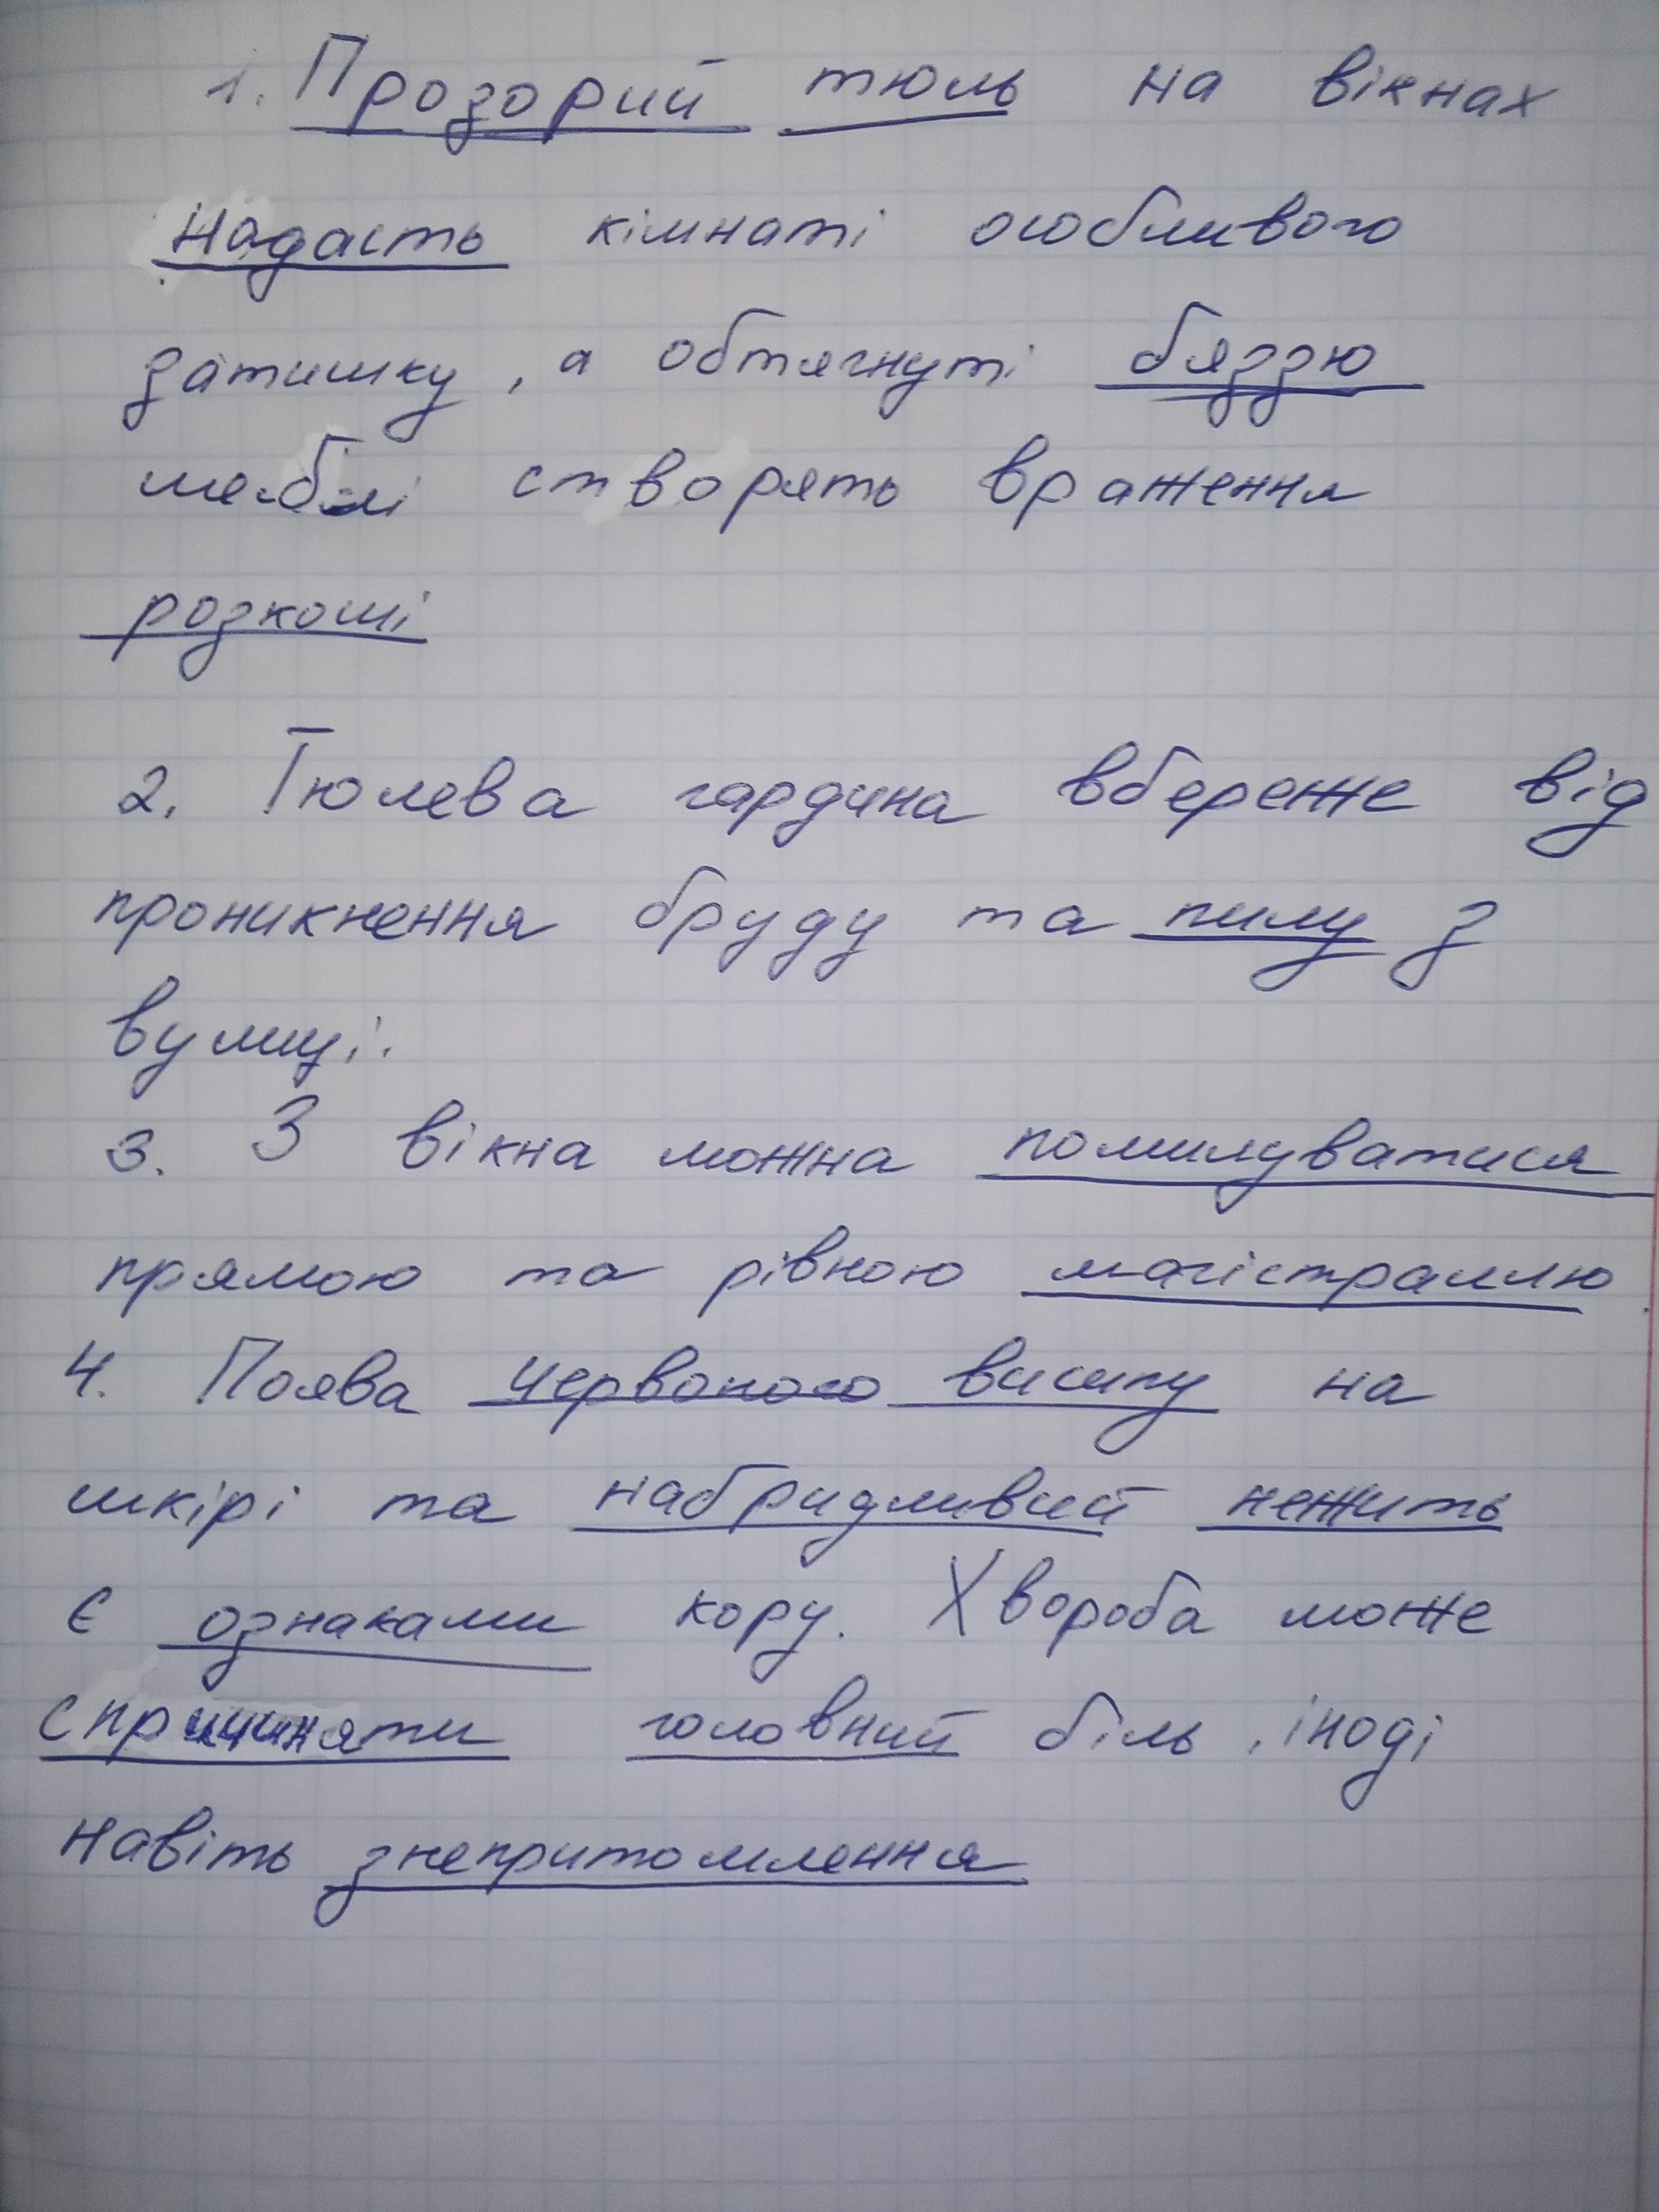 1. Прозорий тюль на вікнах
надасть кімнаті особливого
затишку, а обтягнуті бяззю
меблі створять враження
розкоші
2. Тюлева гардина вбереже від
проникнення бруду та пилу з
вулиці.
3. З вікна можна помилуватися
прямою та рівною магістраллю.
4. Поява червоного висипу на
шкірі та набридливий нежить
є ознаками кору. Хвороба може
спричиняти головний біль, іноді
навіть знепритомлення